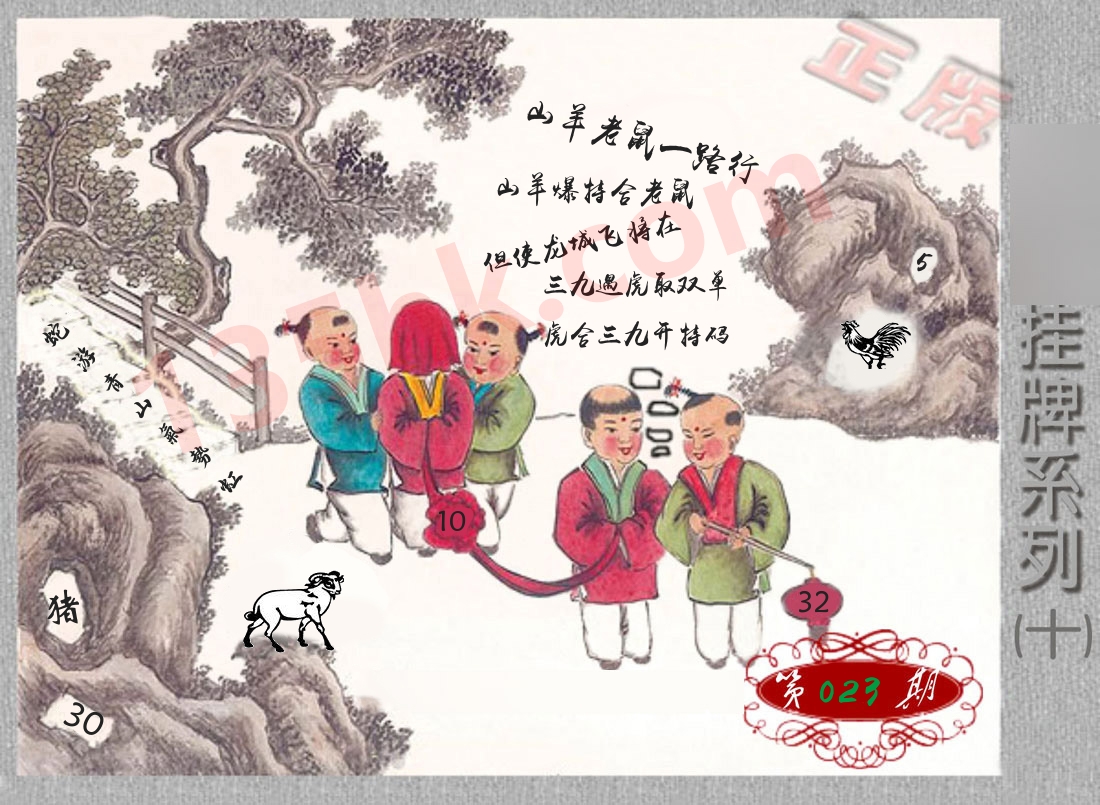 正版
山羊老鼠一路行
山羊爆特合老鼠
但使龙城飞将在
三九遇虎取双单
虎合三九开特码
137hk.com
5
蛇游青山氣势红
10
猪
32
30
第023期
挂牌系列(十)